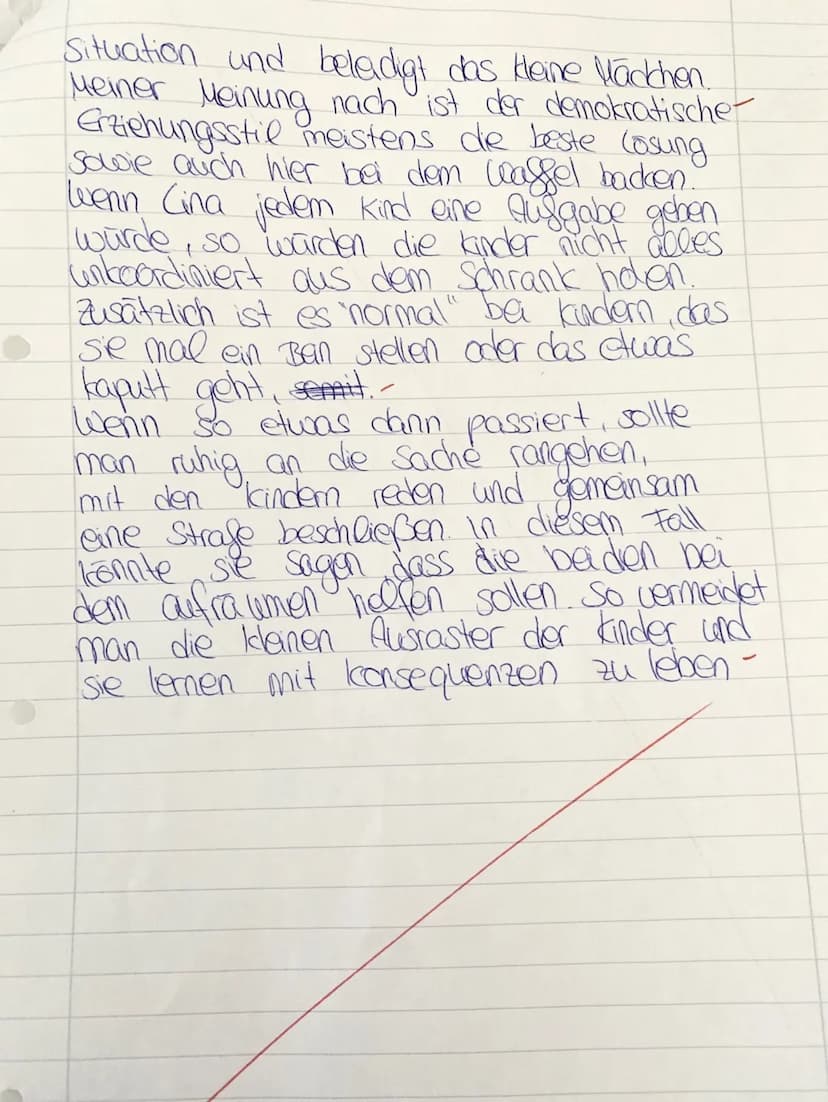 Situation und beleidigt das kleine Mädchen.
Meiner Meinung nach ist der demokratische
Erziehungsstil meistens die beste Lösung
sowie auch hier bei dem Waffel backen.
Wenn Lina jedem Kind eine Aufgabe geben
würde, so würden die Kinder nicht alles
unkoordiniert aus dem Schrank holen.
Zusätzlich ist es "normal" bei Kindern, das
sie mal ein Bein stellen oder das etwas
kaputt geht, somit.
Wenn so etwas dann passiert, sollte
man ruhig an die Sache rangehen,
mit den Kindern reden und gemeinsam
eine Strafe beschließen. In diesem Fall
könnte sie sagen dass die beiden bei
dem aufräumen helfen sollen. So vermeidet
man die kleinen Ausraster der Kinder und
sie lernen mit Konsequenzen zu leben